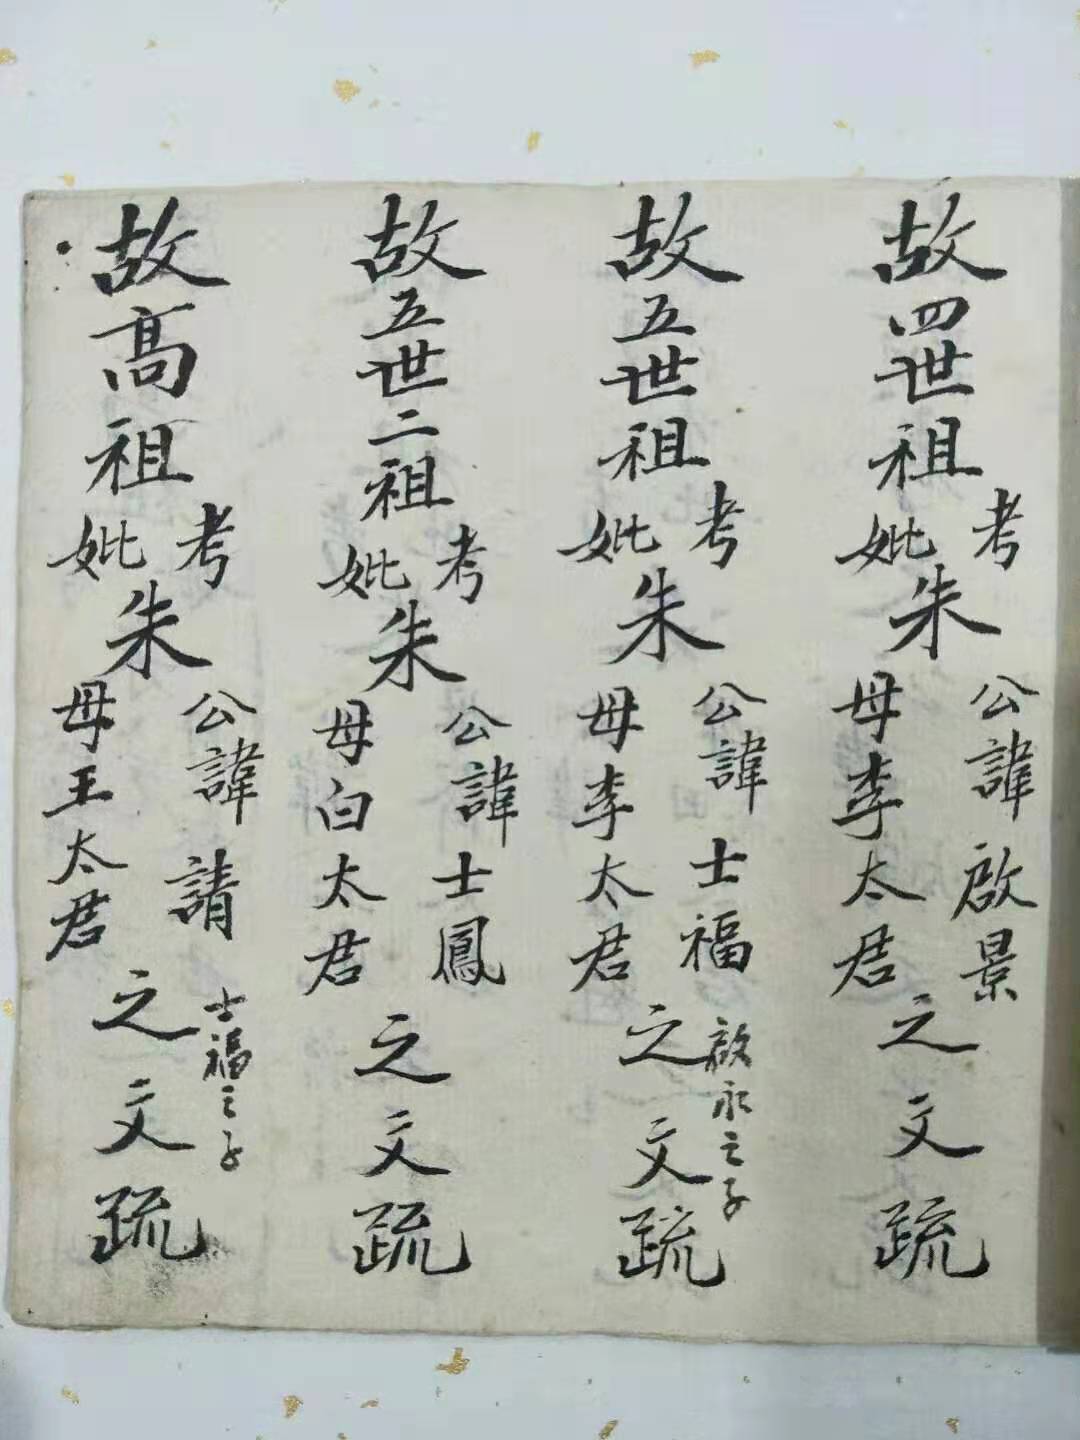 故四世祖考妣朱公諱啟景母李太君之文疏
故五世祖考妣朱公諱士福母李太君之文疏
啟永之子
故五世二祖考妣朱公諱士鳳母白太君之文疏
故高祖考妣朱公諱請母王太君之文疏
士福之子